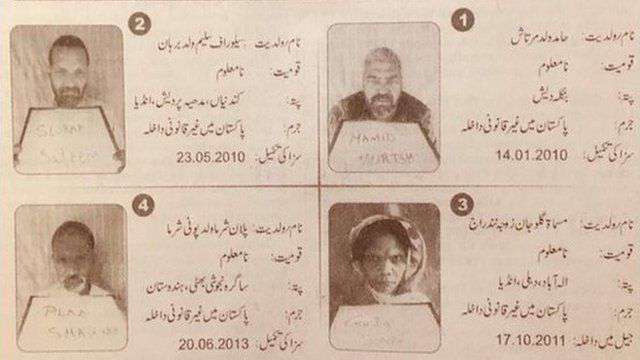 1
نام رولدیت: حامد ولد مرتاش
قومیت: نامعلوم
پتہ: بنگلہ دیش
جرم: پاکستان میں غیر قانونی داخلہ
سزا کی تکمیل: 14.01.2010
HAMID
MURTSH
2
نام رولدیت: سیلوراف سلیم ولد برہان
قومیت: نامعلوم
پتہ: کندنیاں، مدھیہ پردیش، انڈیا
جرم: پاکستان میں غیر قانونی داخلہ
سزا کی تکمیل: 23.05.2010
SALEEM
3
نام رولدیت: مسماۃ گلو جان زوجہ نندراج
قومیت: نامعلوم
پتہ: الہ آباد، دہلی، انڈیا
جرم: پاکستان میں غیر قانونی داخلہ
جیل میں داخلہ: 17.10.2011
4
نام رولدیت: پلان شرما ولد پونی شرما
قومیت: نامعلوم
پتہ: ساگرہ نجوشی بھٹی، ہندوستان
جرم: پاکستان میں غیر قانونی داخلہ
سزا کی تکمیل: 20.06.2013
PLAN